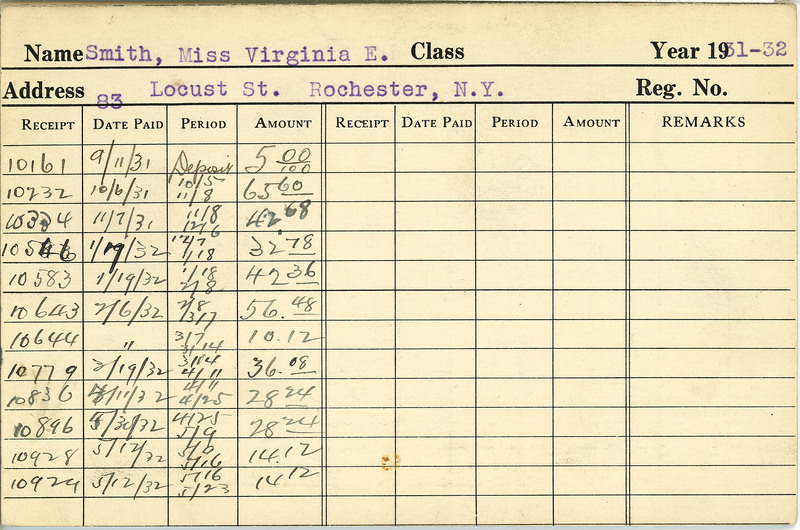 Name Smith, Miss Virginia E. Class Year 1931-32
Address 83 Locust St. Rochester, N.Y. Reg. No.
RECEIPT DATE PAID PERIOD AMOUNT RECEIPT DATE PAID PERIOD AMOUNT REMARKS
10161 9/11/31 Deposit 5 00/100
10232 10/6/31 10/5 11/8 65 60
10334 11/7/31 11/8 12/6 42.68
10546 1/19/32 12/7 1/18 32 78
10583 1/19/32 1/18 2/8 42 36
10643 2/6/32 2/8 3/7 56.48
10644 " 3/7 3/14 10.12
10779 3/19/32 3/14 4/11 36.08
10836 4/11/32 4/11 4/25 28 24
10896 4/25 5/9 28 24
10928 5/12/32 5/16 14.12
10929 5/12/32 5/16 5/23 14 12